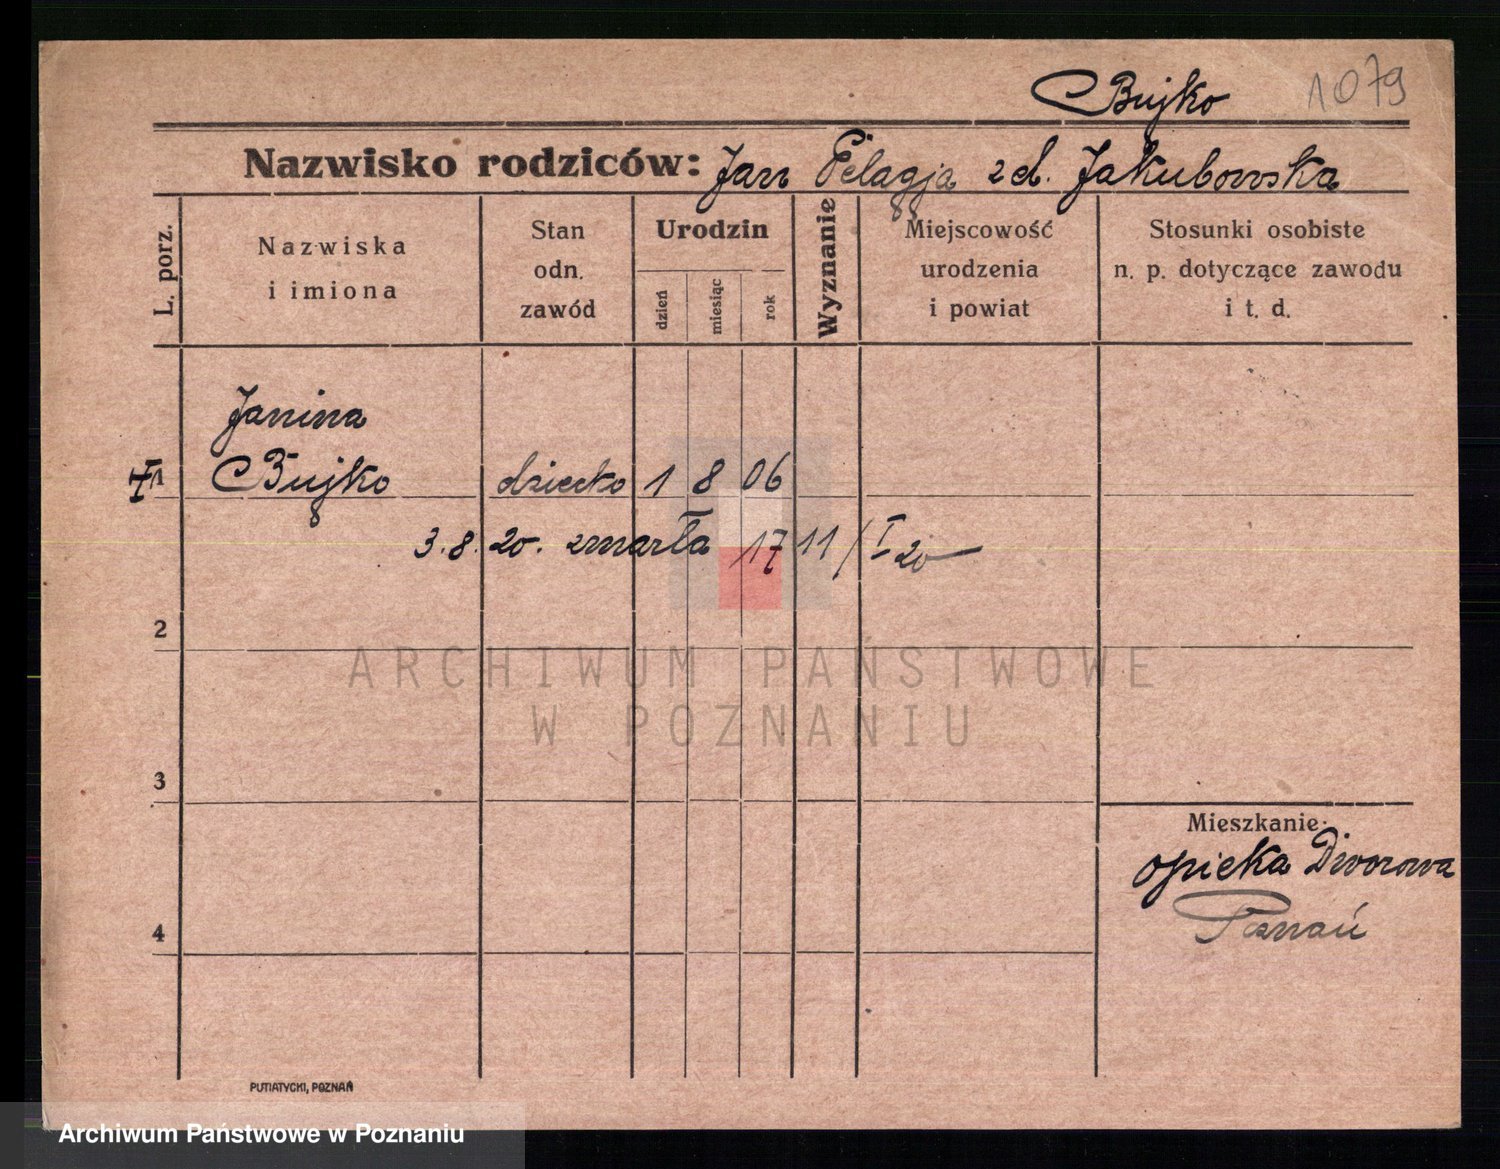 Bujko 1079
Nazwisko rodziców: Jan Pelagja zd. Jakubowska
L. porz.
Nazwiska
i imiona
Stan
odn.
zawód
Urodzin
dzień
miesiąc
rok
Wyznanie
Miejscowość
urodzenia
i powiat
Stosunki osobiste
n. p. dotyczące zawodu
i t. d.
Janina
1 Bujko dziecko 1 8 06
3.8.20. zmarła 17 11/I 20
2
ARCHIWUM PAŃSTWOWE
W POZNANIU
3
Mieszkanie
opieka Dworowa
Poznań
4
PUTIATYCKI, POZNAŃ
Archiwum Państwowe w Poznaniu